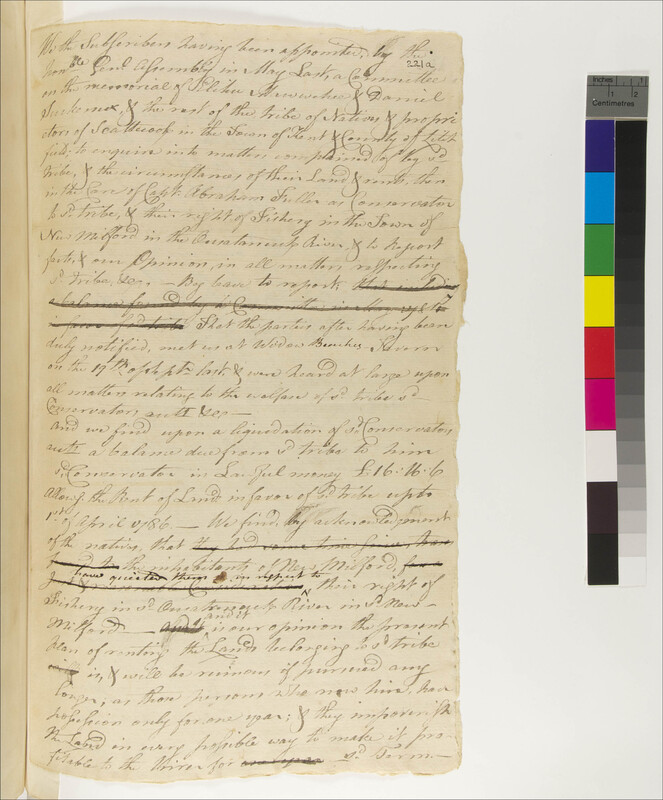 We the Subscribers having been appointed, by the
221a
Honble Genll Assembly in May Last, a Committee
on the memorial of Peter Mawwehew & Daniel
Suckonux, & the rest of the tribe of Natives & propri
etors of Scatticoop in the Town of Kent & County of Litch
field; to enquire into matters complained of by sd
tribe, & the circumstances of their Land & rents, then
in the Care of Capt. Abraham Fuller as Conservator
to sd tribe, & their right of Fishery in the Town of
New Milford in the Ousatannuck River, & to Report
facts, & our Opinion, in all matters respecting
sd tribe, &c. — Beg leave to report,
That the parties after having been
duly notified, met us at Widow Beeches Tavern
on the 19th of Septr last, & were heard at large upon
all matters relating to the welfare of sd tribe sd
Conservators autt &c. —
And we find upon a liquidation of sd Conservators
autt a balance due from sd tribe to him
sd Conservator in Lawful money £16:16:6
Allowg the Rent of Lands in favor of sd tribe up to
1st of April 1786. — We find, by acknowledgment
of the natives, that they had some time since
the inhabitants of New Milford,
have quieted them in respect to
their right of
Fishery in sd Ousatannuck River in sd New
Milford — and it is our opinion the present
plan of renting the Lands belonging to sd tribe
is, & will be ruinous if pursued any
longer, as those persons who now hire, have
possession only for one year; & they impoverish
the Land in every possible way to make it pro
fitable to the Hirer for sd Term —